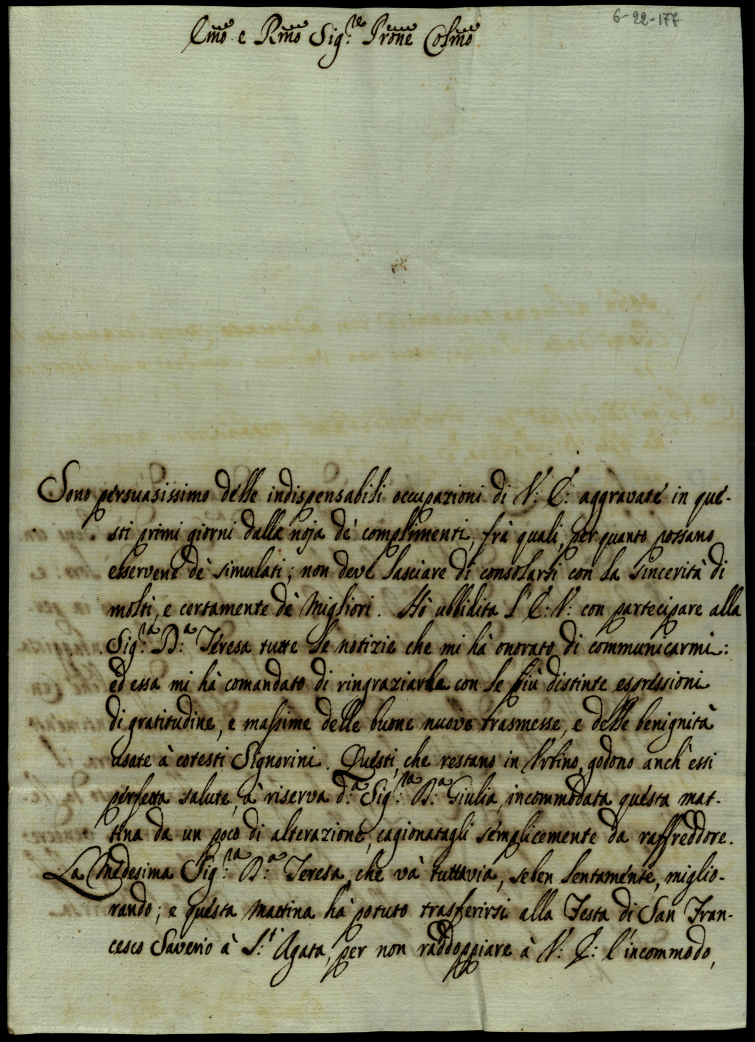 6-22-177
Illmo e Rmo Sig.re Prone Colmo
Sono persuasissimo delle indispensabili occupazioni di V: E: aggravate in que-
sti primi giorni dalla noja de' complimenti, frà quali, per quanto possano
esservene de' simulati; non deve lasciare di consolarti con la sincerità di
molti, e certamente de' Migliori. Hò ubbidita l'E: V: con partecipare alla
Sig.ra D.a Teresa tutte le notizie che mi hà onorato di communicarmi:
ed essa mi hà comandato di ringraziarla con le più distinte espressioni
di gratitudine, e massime delle buone nuove trasmesse, e delle benignità
usate à cotesti Signorini. Questi, che restano in Urbino, godono anch'essi
perfetta salute, à riserva d.a Sig.ra D.a Giulia, incommodata questa mat-
tina da un poco di alterazione, cagionatagli semplicemente da raffreddore.
La medesima Sig.ra D.a Teresa, che và tuttavia, seben lentamente, miglio-
rando; e questa mattina hà potuto trasferirsi alla Festa di San Fran-
cesco Saverio à S.t' Agata, per non raddoppiare à V: E: l'incommodo,